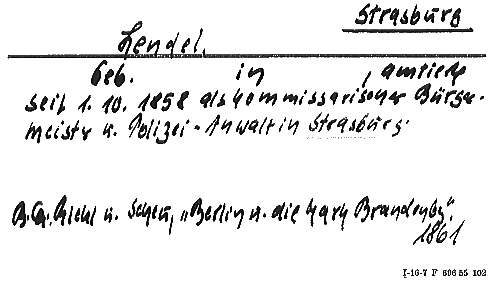 Strasburg
Lendel,
Geb. in , amtierte
seit 1. 10. 1858 als kommissarischer Bürger-
meister u. Polizei-Anwalt in Strasburg.
B.Qu. Riehl u. Scheu, „Berlin u. die Mark Brandenbg".
1861
I-16-7 F 606 55 102